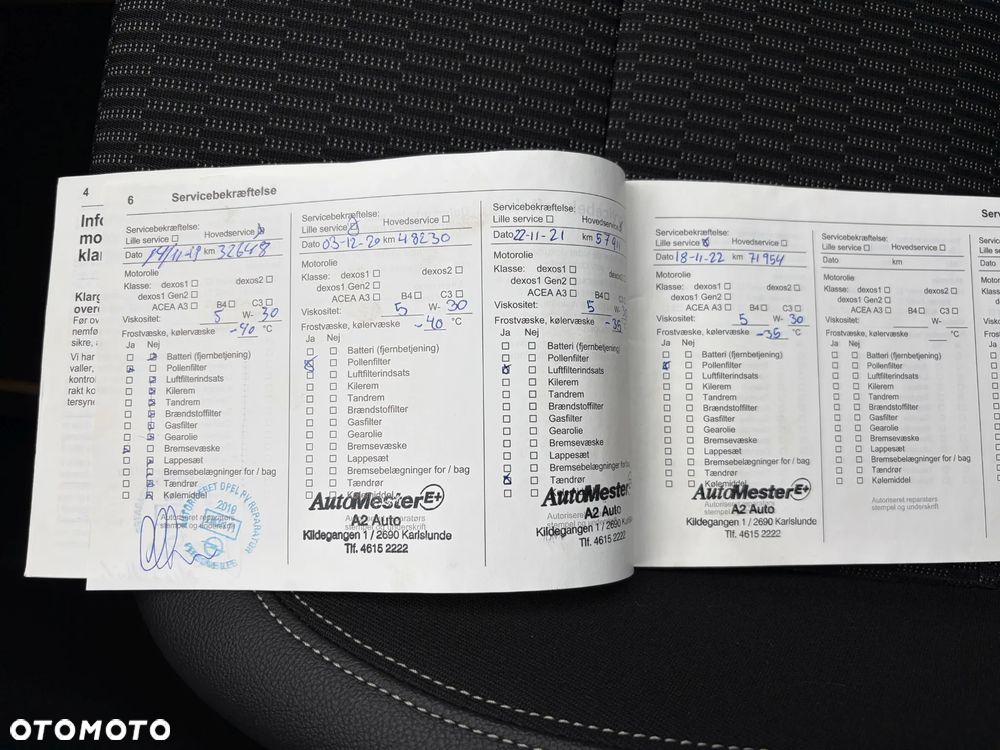 4
Info
mo
klar
Klarg
overd
Før ov
nemfø
sikre, a
Vi har
valler,
kontrol
rakt ko
tersyne
6 Servicebekræftelse
Servicebekræftelse:
Lille service Hovedservice
Dato km 32648
Motorolie
Klasse: dexos1 dexos2
dexos1 Gen2
ACEA A3 B4 C3
Viskositet: 5 W- 30
Frostvæske, kølervæske -40 °C
Ja Nej
Batteri (fjernbetjening)
Pollenfilter
Luftfilterindsats
Kilerem
Tandrem
Brændstoffilter
Gasfilter
Gearolie
Bremsevæske
Lappesæt
Bremsebelægninger for / bag
Tændrør
Kølemiddel
Autoriseret reparatørs
stempel og underskrift
Servicebekræftelse:
Lille service Hovedservice
Dato 03-12-20 km 48230
Motorolie
Klasse: dexos1 dexos2
dexos1 Gen2
ACEA A3 B4 C3
Viskositet: 5 W- 30
Frostvæske, kølervæske -40 °C
Ja Nej
Batteri (fjernbetjening)
Pollenfilter
Luftfilterindsats
Kilerem
Tandrem
Brændstoffilter
Gasfilter
Gearolie
Bremsevæske
Lappesæt
Bremsebelægninger for / bag
Tændrør
AutoMester E+
A2 Auto
Kildegangen 1 / 2690 Karlslunde
Tlf. 4615 2222
Servicebekræftelse:
Lille service Hovedservice
Dato 22-11-21 km 57911
Motorolie
Klasse: dexos1 dexos2
dexos1 Gen2
ACEA A3 B4 C3
Viskositet: 5 W- 30
Frostvæske, kølervæske -35
Ja Nej
Batteri (fjernbetjening)
Pollenfilter
Luftfilterindsats
Kilerem
Tandrem
Brændstoffilter
Gasfilter
Gearolie
Bremsevæske
Lappesæt
Bremsebelægninger for / bag
Tændrør
AutoMester
A2 Auto
Kildegangen 1 / 2690 Karlslunde
Tlf. 4615 2222
Serv
Servicebekræftelse:
Lille service Hovedservice
Dato 18-11-22 km 71954
Motorolie
Klasse: dexos1 dexos2
dexos1 Gen2
ACEA A3 B4 C3
Viskositet: 5 W- 30
Frostvæske, kølervæske -35 °C
Ja Nej
Batteri (fjernbetjening)
Pollenfilter
Luftfilterindsats
Kilerem
Tandrem
Brændstoffilter
Gasfilter
Gearolie
Bremsevæske
Lappesæt
Bremsebelægninger for / bag
Tændrør
Kølemiddel
AutoMester E+
A2 Auto
Kildegangen 1 / 2690 Karlslunde
Tlf. 4615 2222
Servicebekræftelse:
Lille service Hovedservice
Dato km
Motorolie
Klasse: dexos1 dexos2
dexos1 Gen2
ACEA A3 B4 C3
Viskositet: W-
Frostvæske, kølervæske °C
Ja Nej
Batteri (fjernbetjening)
Pollenfilter
Luftfilterindsats
Kilerem
Tandrem
Brændstoffilter
Gasfilter
Gearolie
Bremsevæske
Lappesæt
Bremsebelægninger for / bag
Tændrør
Kølemiddel
Autoriseret reparatørs
stempel og underskrift
Lille
Dato
Motorolie
OTOMOTO